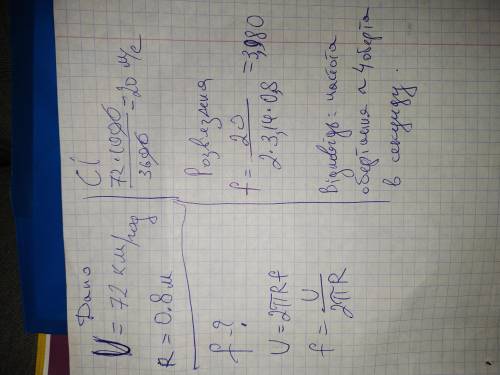 Дано
U = 72 км/год
R = 0.8 м
f - ?
U = 2πRf
f = U / 2πR
СІ
72·1000 / 3600 = 20 м/с
Розв'язання
f = 20 / 2·3,14·0,8 = 3,980
Відповідь: частота
обертання ≈ 4 оберта
в секунду.